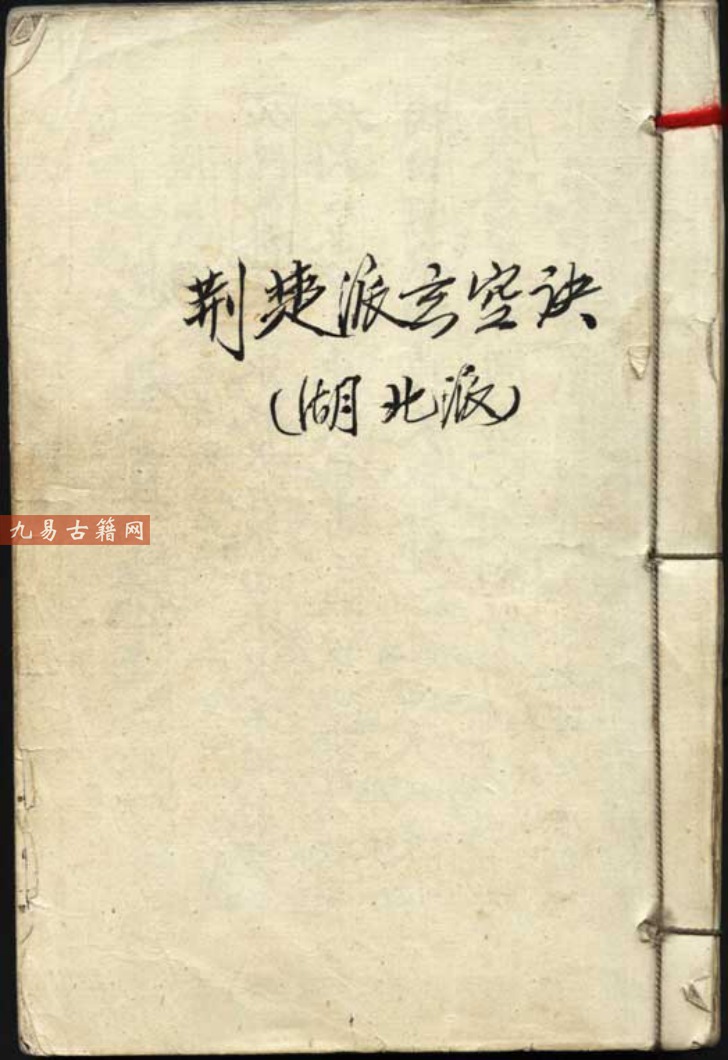 荆楚派玄空诀
(湖北派)
九易古籍网